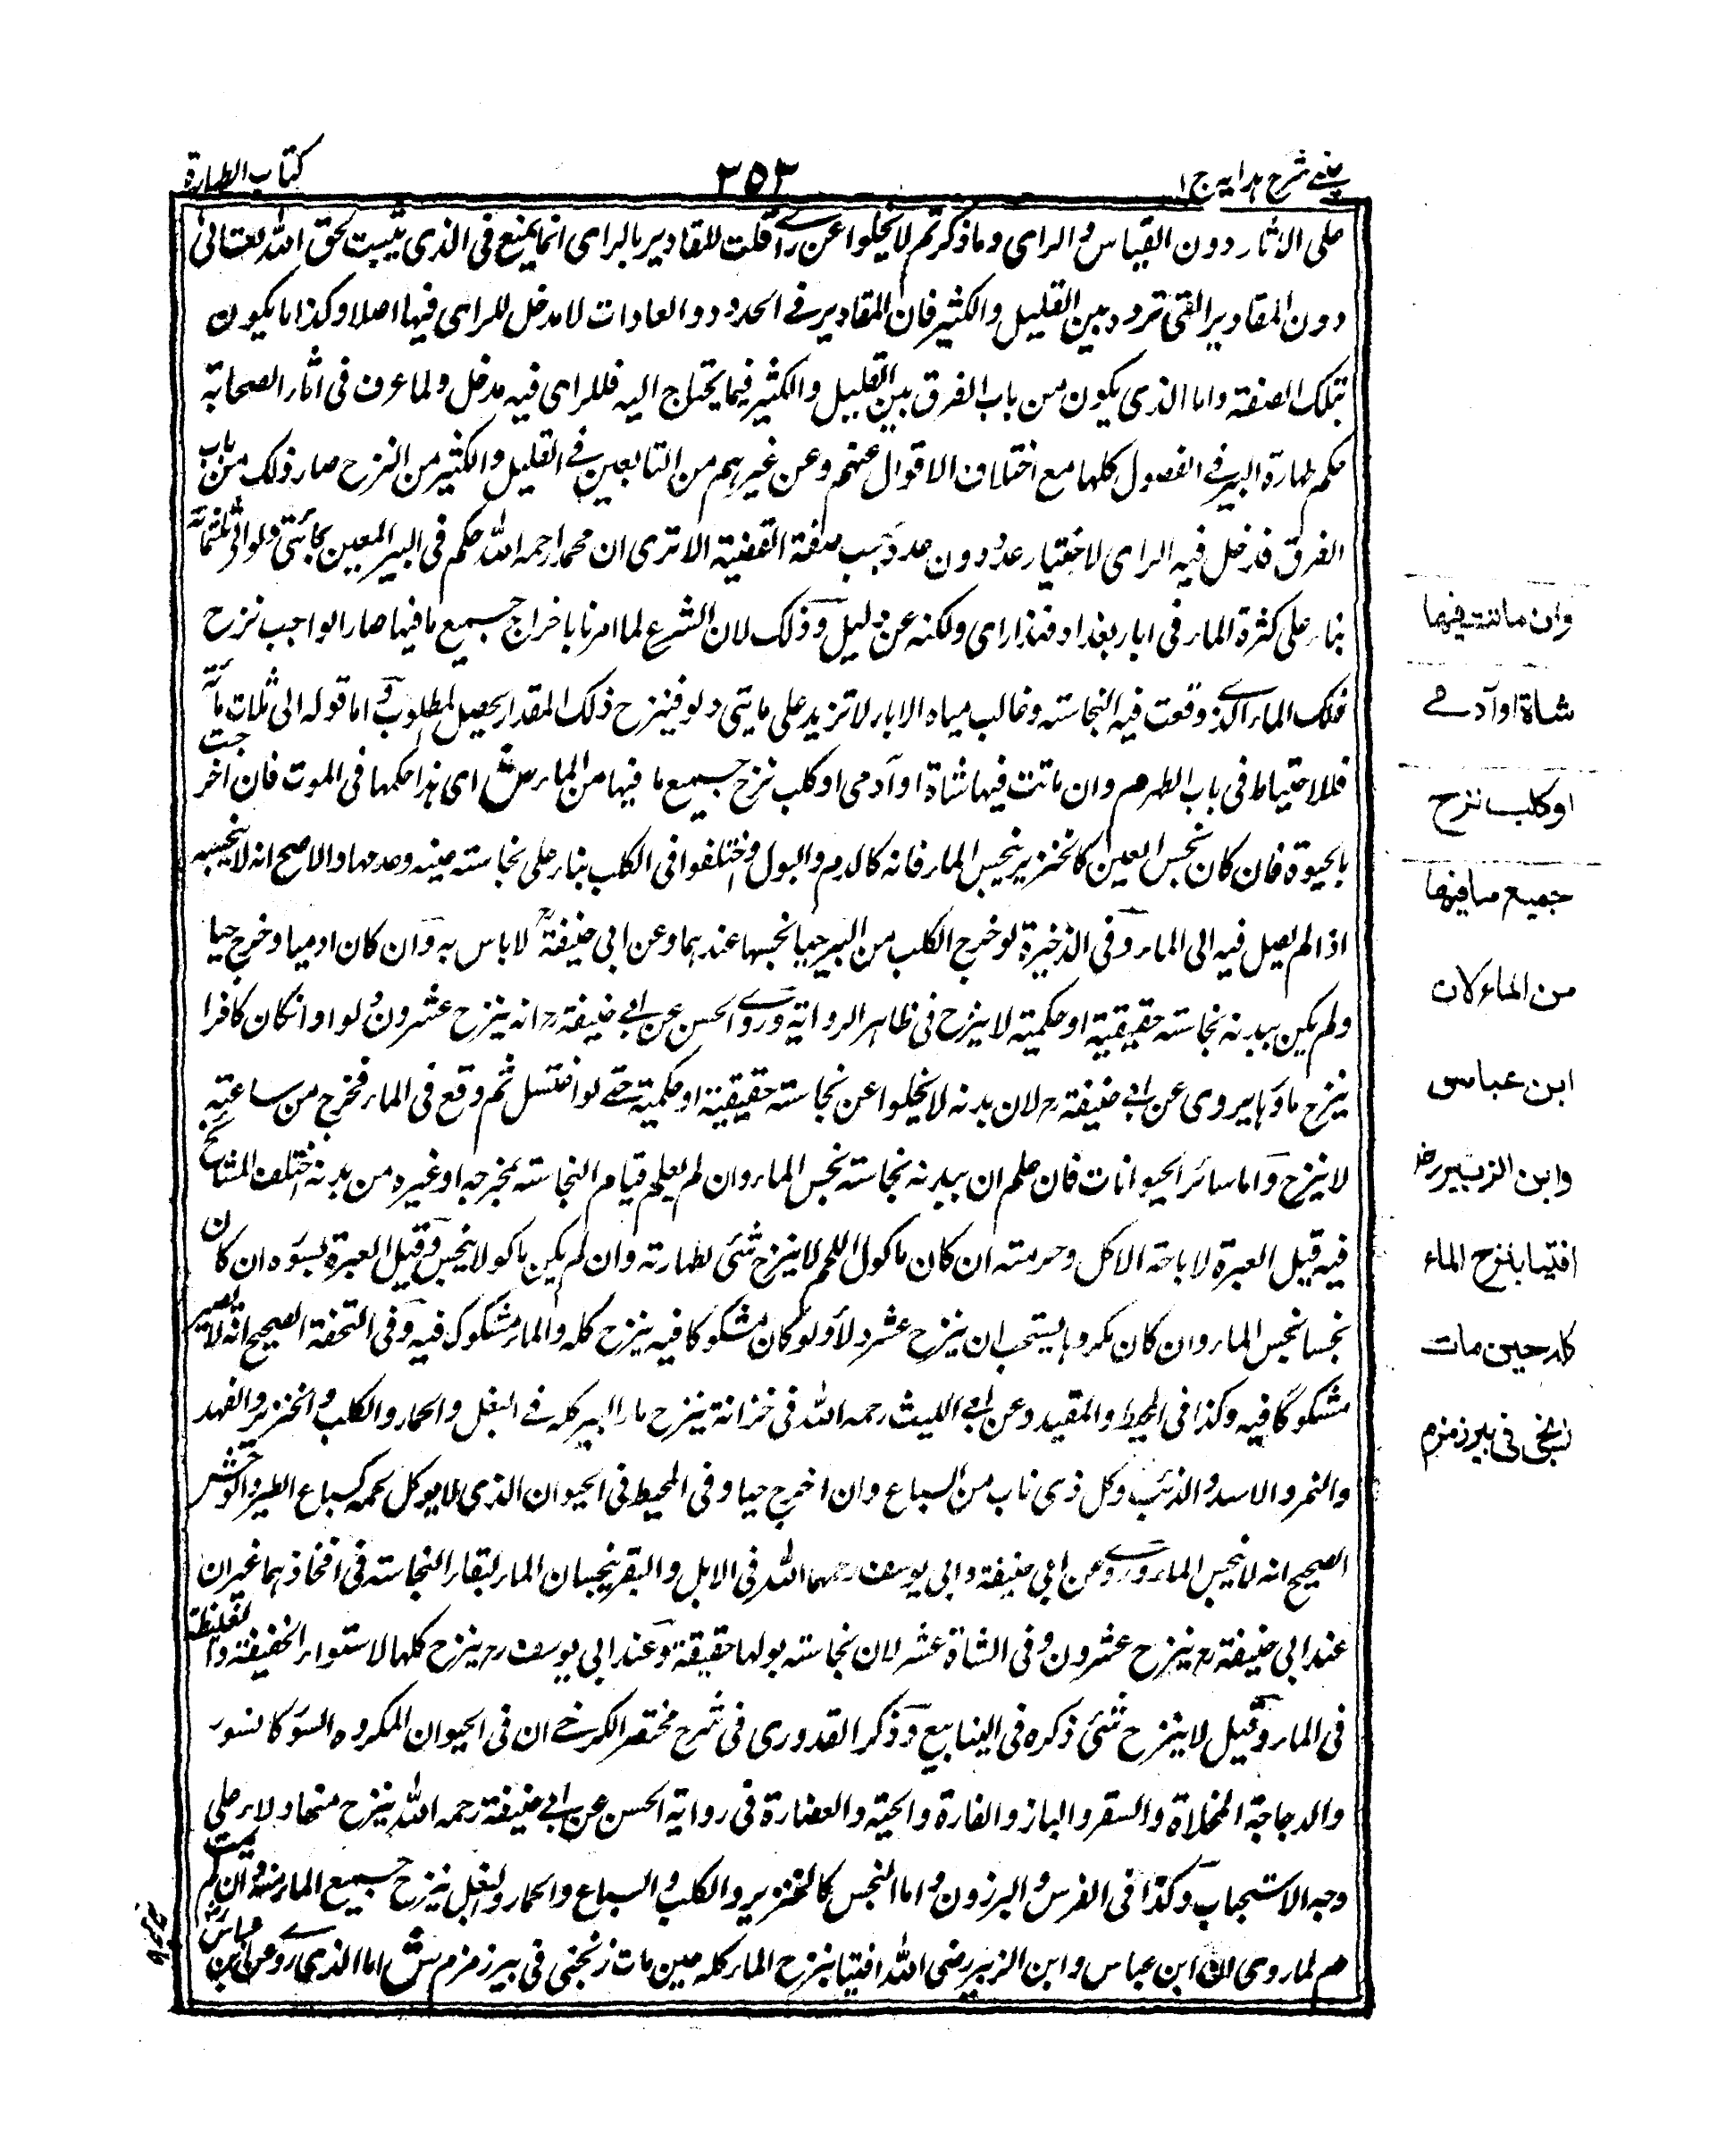 عينے شرح ہدایہ ج ١
٣٥٣
كتاب الطهارة
على الاثار دون القياس و الراى وما ذكرتم لا يخلوا عن راے قلت المقادير بالراى انما يمنع فى الذى يثبت لحق الله تعالى
دون المقادير التى تردد بين القليل والكثير فان المقادير فے الحدود والعادات لا مدخل للراى فيها اصلا وكذا ما يكون
بتلك الصفة واما الذى يكون من باب الفرق بين القليل والكثير فيما يحتاج اليه فللراى فيه مدخل ولما عرف فى اثار الصحابة
حكم طهارة البير فے الفصول كلها مع اختلاف الاقوال عنهم وعن غيرهم من التابعين فے القليل والكثير من النزح صار ذلك من باب
الفرق فدخل فيه الراى لاختيار عدد دون عدد بسبب صفة القضية الا ترى ان محمدا رحمه الله حكم فى البير المعين بمائتى دلو الى ثلثمائة
بناء على كثرة الماء فى ابار بغداد فهذا راى ولكنه عن دليل وذلك لان الشرع لما امرنا باخراج جميع ما فيها صار الواجب نزح
ذلك الماء الذے وقعت فيه النجاسة وغالب مياه الابار لا تزيد على مايتى دلو فينزح ذلك المقدار يحصل المطلوب واما قوله الى ثلاث مائة
فللاحتياط فى باب الطهر م وان ماتت فيها شاة او آدمى او كلب نزح جميع ما فيها من الماء ش اى هذا حكمها فى الموت فان اخرجت
بالحيوة فان كان نجس العين كالخنزير ينجس الماء فانه كالدم والبول واختلفوا فى الكلب بناء على نجاسة عينه وعدمها والاصح انه لا ينجسه
اذا لم يصل فيه الى الماء وفى الذخيرة لو خرج الكلب من البير حيا نجسها عندهما وعن ابى حنيفة رح لا باس به وان كان ادميا وخرج حيا
ولم يكن ببدنه نجاسة حقيقية او حكمية لا ينزح فى ظاهر الرواية وروے الحسن عن ابے حنيفة رح انه ينزح عشرون دلوا وانكان كافرا
ينزح ماؤها يروى عن ابے حنيفة رح لان بدنه لا يخلوا عن نجاسة حقيقية او حكمية حتے لو اغتسل ثم وقع فى الماء فخرج من ساعته
لا ينزح واما سائر الحيوانات فان علم ان ببدنه نجاسة نجس الماء وان لم يعلم قيام النجاسة بمخرجه او غيره من بدنه اختلف المشايخ
فيه قيل العبرة لاباحة الاكل وحرمته ان كان ماكول اللحم لا ينزح شئى لطهارته وان لم يكن ماكولا ينجس وقيل العبرة بسوره ان كان
نجسا نجس الماء وان كان مكروها يستحب ان ينزح عشر دلاء ولو كان مشكوكا فيه ينزح كله والماء مشكوك فيه وفى التحفة الصحيح انه لا يصير
مشكوكا فيه وكذا فى المحيط والمفيد وعن ابے الليث رحمه الله فى خزانة ينزح ماء البير كله فے البغل والحمار والكلب والخنزير والفهد
والنمر والاسد والذئب وكل ذى ناب من السباع وان اخرج حيا وفى المحيط فى الحيوان الذى لا يوكل لحمه كسباع الطير والوحش
الصحيح انه لا ينجس الماء وروے عن ابى حنيفة وابى يوسف رحمهما الله فى الابل والبقر ينجسان الماء لبقاء النجاسة فى افخاذهما غير ان
عند ابى حنيفة رح ينزح عشرون وفى الشاة عشر لان نجاسة بولها حقيقة وعند ابى يوسف رح ينزح كلها لاستواء الخفيفة والغليظة
فى الماء وقيل لا ينزح شئى ذكره فى الينابيع وذكر القدورى فى شرح مختصر الكرخے ان فى الحيوان المكروه السور كالسنور
والدجاجة المخلاة والسقر والباز والفارة والحية والعضارة فى رواية الحسن عن ابے حنيفة رحمه الله ينزح منها دلاء على
وجه الاستحباب وكذا فى الفرس والبرذون واما النجس كالخنزير والكلب والسباع والحمار والبغل ينزح جميع الماء منه وان لم يمت
م لما روى ان ابن عباس وابن الزبير رضى الله افتيا بنزح الماء كله حين مات زنجى فى بير زمزم ش اما الذى روے عن ابن عباس رض
وان ماتت فيها
شاة او آدمے
او كلب نزح
جميع ما فيها
من الماء لان
ابن عباس
وابن الزبير رض
افتيا بنزح الماء
كله حين مات
زنجى فى بير زمزم